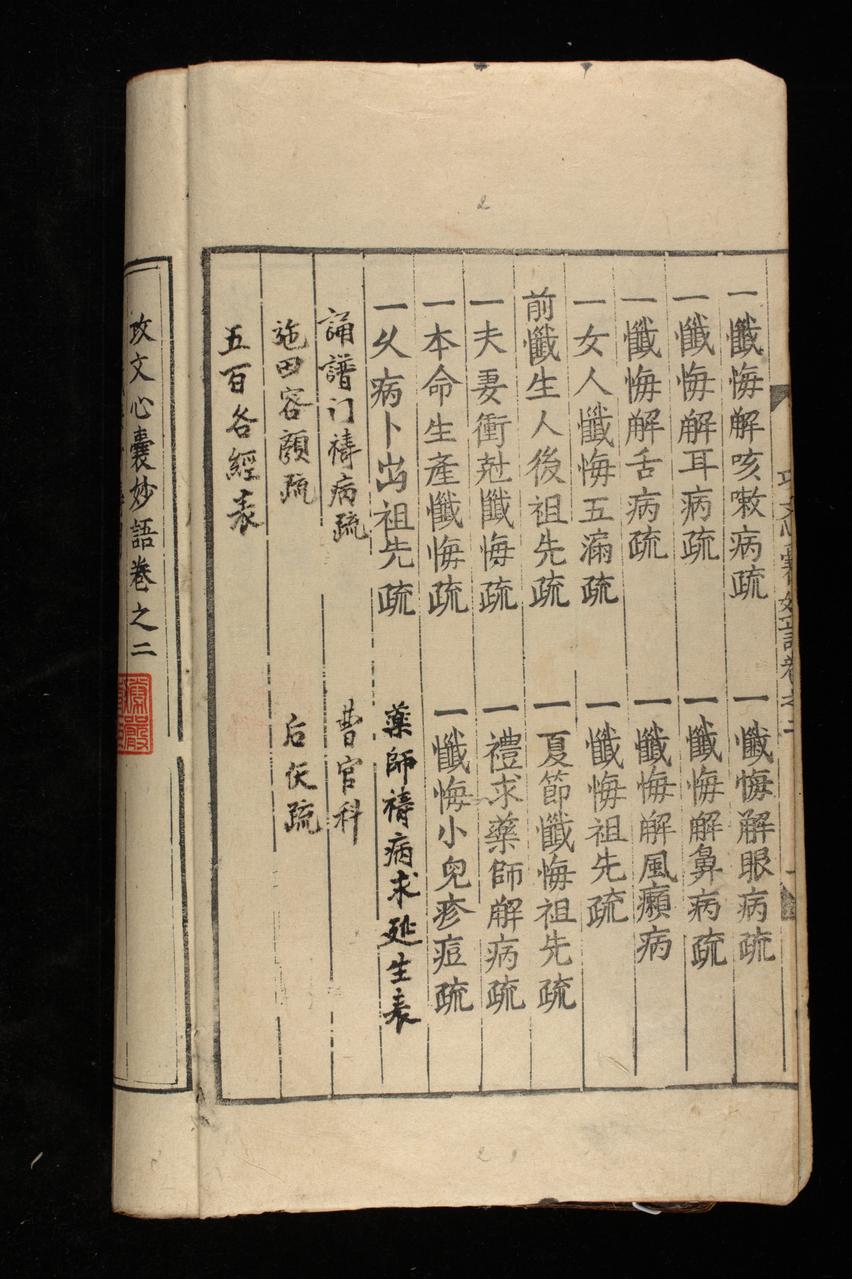 攻文心囊妙語卷之二
一懺悔解咳嗽病疏
一懺悔解眼病疏
一懺悔解耳病疏
一懺悔解鼻病疏
一懺悔解舌病疏
一懺悔解風癩病
一女人懺悔五漏疏
一懺悔祖先疏
前懺生人後祖先疏
一夏節懺悔祖先疏
一夫妻衝尅懺悔疏
一禮求藥師解病疏
一本命生產懺悔疏
一懺悔小兒疹痘疏
一久病卜崗祖先疏
藥師禱病求延生表
誦譜门禱病疏
曹官科
施田容顔疏
后伕疏
五百各經表
攻文心囊妙語卷之二